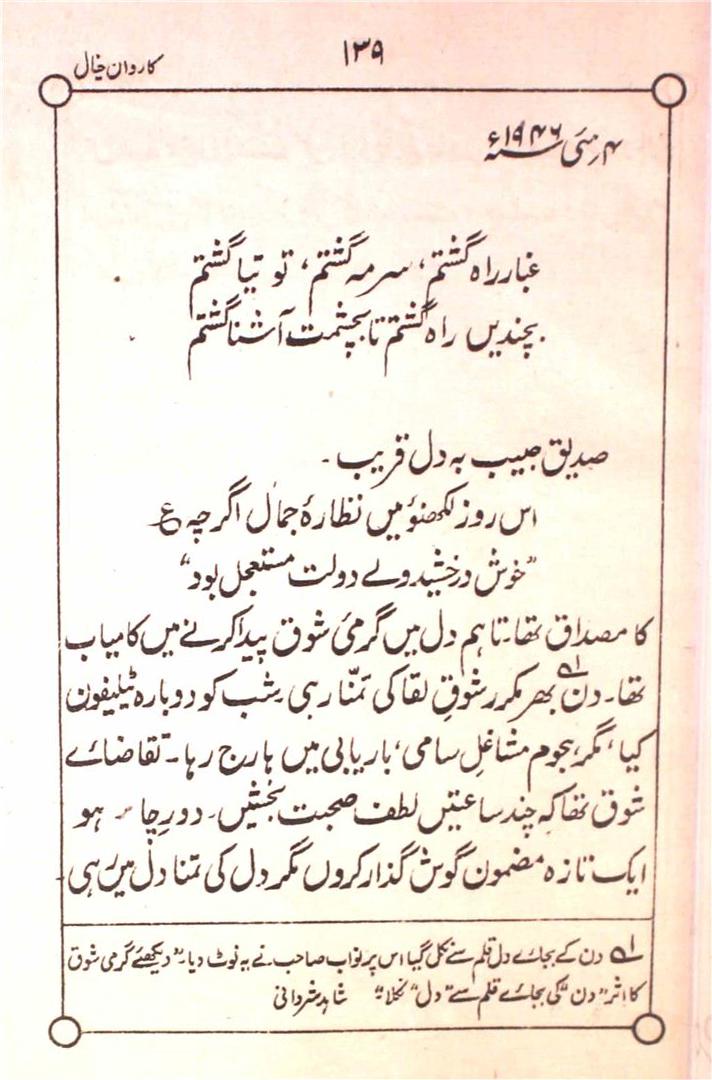 کاروان خیال
۱۳۹
۴ رمئی سنہ ۱۹۴۶ء
غبارراہ گشتم، سرمہ گشتم، توتیا گشتم
بچندیں راہ گشتم تا بچشمت آشنا گشتم
صدیق حبیب بہ دل قریب۔
اس روز لکھنؤ میں نظارۂ جمال اگرچہ ع
"خوش درخشید ولے دولت مستعجل بود"
کا مصداق تھا۔ تاہم دل میں گرمئ شوق پیدا کرنے میں کامیاب
تھا۔ دن لہ بھر مکرر شوقِ لقا کی تمنّا رہی۔ شب کو دوبارہ ٹیلیفون
کیا، مگر ہجوم مشاغلِ سامی، باریابی میں ہارج رہا۔ تقاضائے
شوق تھا کہ چند ساعتیں لطف صحبت بخشیں۔ دورِ چاء ہو
ایک تازہ مضمون گوش گذار کروں مگر دل کی تمنا دل میں رہی
لہ دن کے بجائے دل قلم سے نکل گیا اس پر نواب صاحب نے یہ نوٹ دیا۔ "دیکھئے گرمی شوق
کا اثر "دن" کی بجائے قلم سے "دل" نکلا" شاہد شروانی